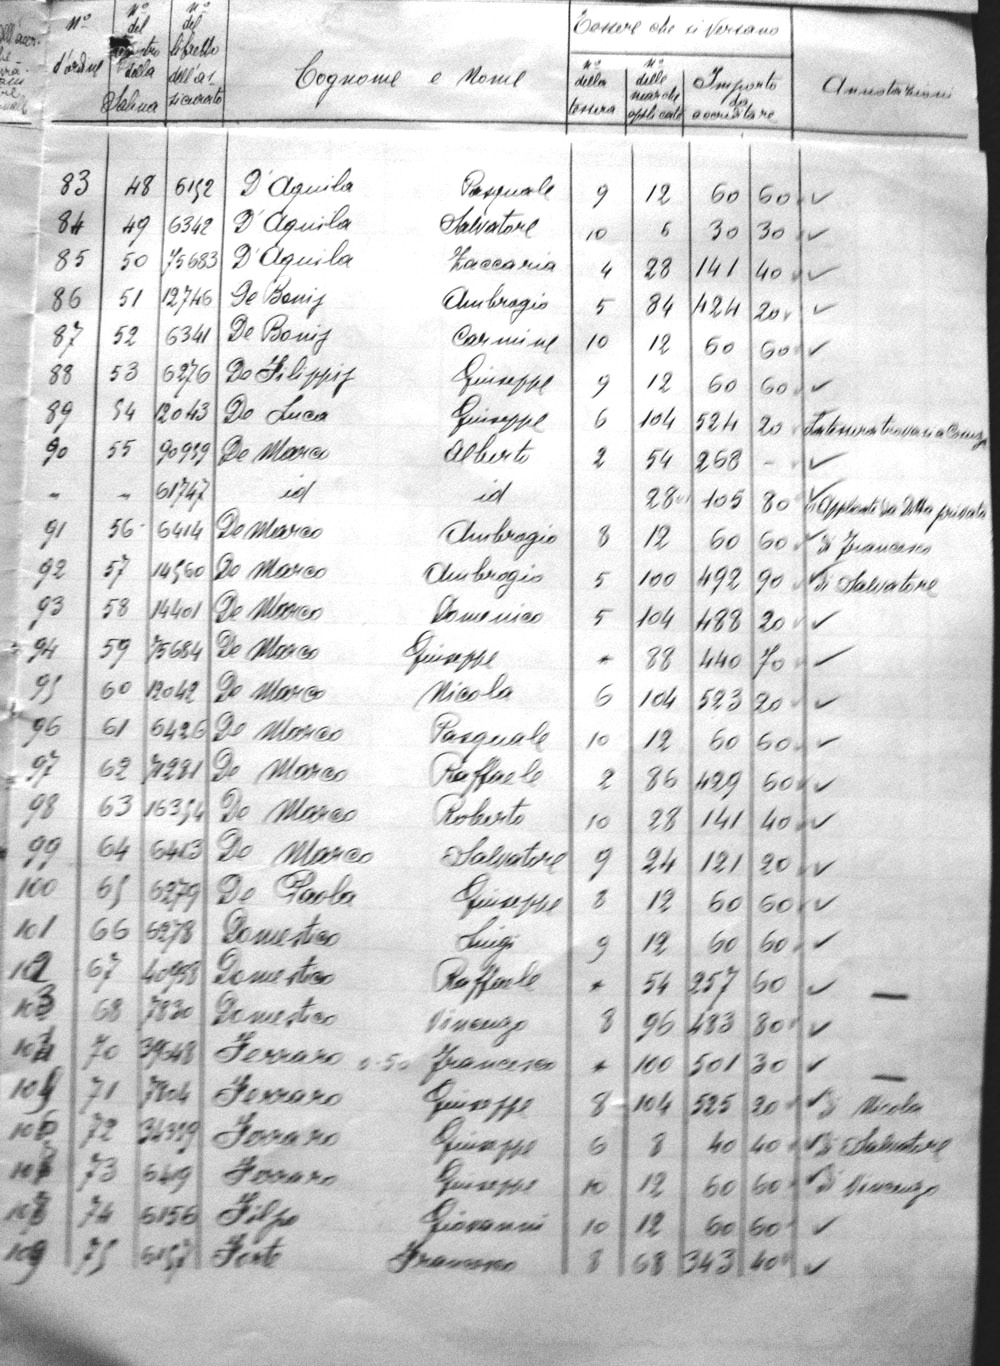 Tessere che si Versano
N° d'ordine N° del registro della Salina N° del libretto dell'assicurato Cognome e Nome N° della tessera N° delle marche applicate Importo da accreditare Annotazioni
83 48 6152 D'Aquila Pasquale 9 12 60 60 ✓
84 49 6342 D'Aquila Salvatore 10 6 30 30 ✓
85 50 75683 D'Aquila Zaccaria 4 28 141 40 ✓
86 51 12746 De Bonis Ambrogio 5 84 424 20 ✓
87 52 6341 De Bonis Carmine 10 12 60 60 ✓
88 53 6276 De Filippis Giuseppe 9 12 60 60 ✓
89 54 12043 De Luca Giuseppe 6 104 524 20 La tessera trovasi a
90 55 90939 De Marco Alberto 2 54 268 - ✓
" " 61747 id id 28 105 80 ✓ Applicate da Ditta privata
91 56 6414 De Marco Ambrogio 8 12 60 60 ✓ di Francesco
92 57 14560 De Marco Ambrogio 5 100 492 90 ✓ di Salvatore
93 58 14401 De Marco Domenico 5 104 488 20 ✓
94 59 75684 De Marco Giuseppe * 88 440 70 ✓
95 60 12042 De Marco Nicola 6 104 523 20 ✓
96 61 6426 De Marco Pasquale 10 12 60 60 ✓
97 62 71281 De Marco Raffaele 2 86 429 60 ✓
98 63 16354 De Marco Roberto 10 28 141 40 ✓
99 64 6413 De Marco Salvatore 9 24 121 20 ✓
100 65 6279 De Paola Giuseppe 8 12 60 60 ✓
101 66 6278 Domestico Luigi 9 12 60 60 ✓
102 67 40938 Domestico Raffaele * 54 257 60 ✓ —
103 68 7830 Domestico Vincenzo 8 96 483 80 ✓
104 70 39648 Ferraro 0.50 Francesco * 100 501 30 ✓ —
105 71 7804 Ferraro Giuseppe 8 104 525 20 ✓ di Nicola
106 72 34399 Ferraro Giuseppe 6 8 40 40 ✓ di Salvatore
107 73 6419 Ferraro Giuseppe 10 12 60 60 ✓ di Vincenzo
108 74 6156 Filpo Giovanni 10 12 60 60 ✓
109 75 6157 Forte Francesco 8 68 343 40 ✓